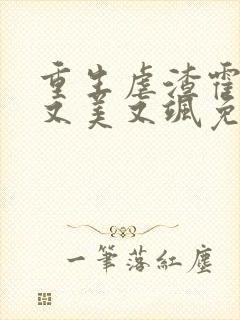 重生虐渣霍
又美又飒免
一筆落紅塵